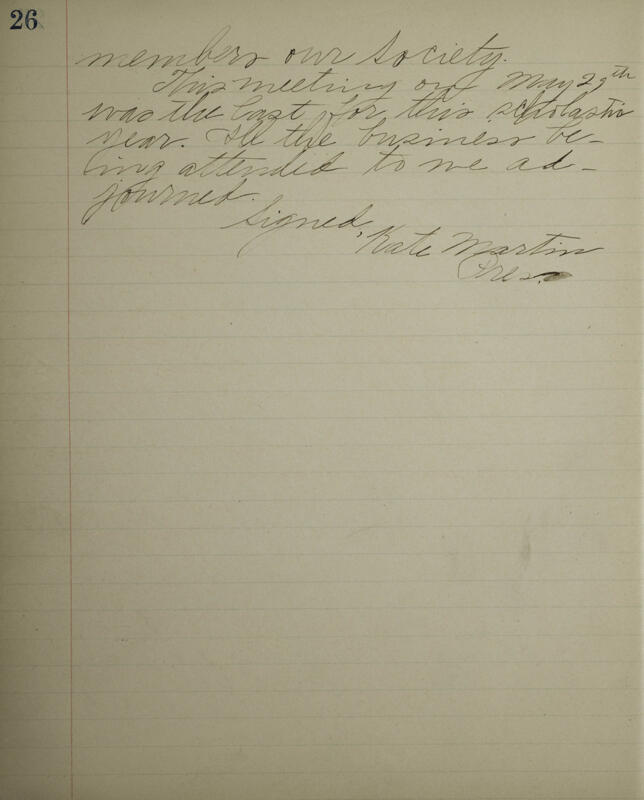 26
members our society.
This meeting on May 29th
was the last for this scholastic
year. All the business be-
ing attended to we ad-
journed.
Signed,
Kate Martin
Pres.